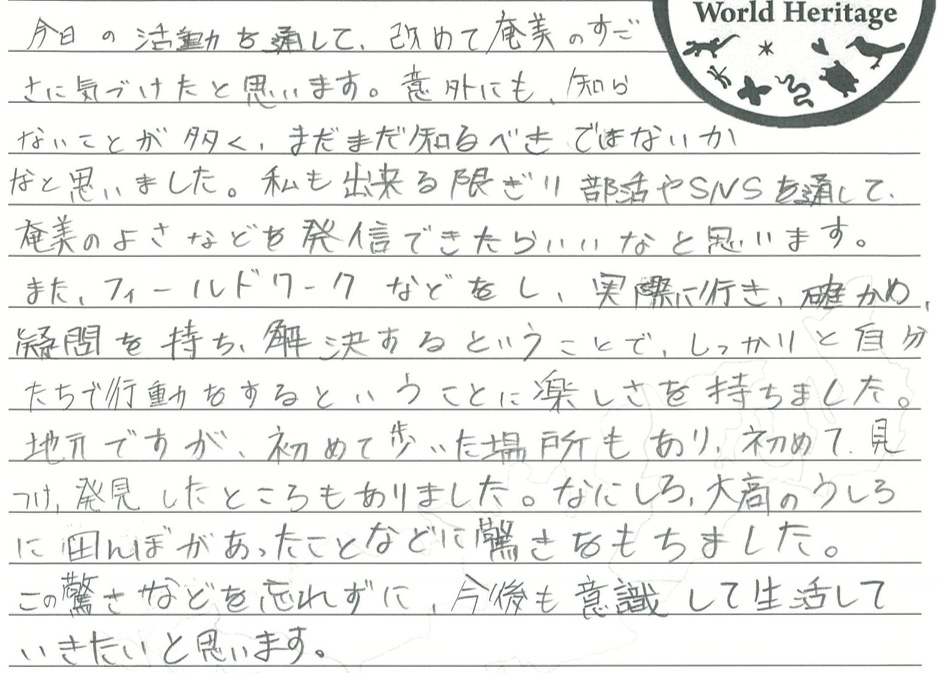 World Heritage
今日の活動を通して、改めて奄美のすご
さに気づけたと思います。意外にも、知ら
ないことが多く、まだまだ知るべきではないか
なと思いました。私も出来る限ぎり部活やSNSを通して、
奄美のよさなどを発信できたらいいなと思います。
また、フィールドワークなどをし、実際に行き、確かめ、
疑問を持ち、解決するということで、しっかりと自分
たちで行動をするということに楽しさを持ちました。
地元ですが、初めて歩いた場所もあり、初めて、見
つけ、発見したところもありました。なにしろ、大商のうしろ
に田んぼがあったことなどに驚きをもちました。
この驚きなどを忘れずに、今後も意識して生活して
いきたいと思います。